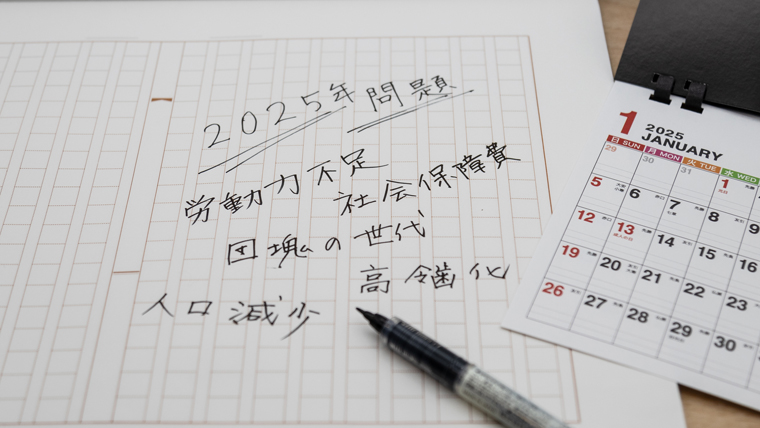 2025年問題
労働力不足
社会保障費
団塊の世代
高齢化
人口減少
1 2025 JANUARY
日 SUN 月 MON 火 TUE 水 WED
29 30 31 1
5 6 7 8 9
12 13 14 15 16
19 20 21 22 23
26 27 28 29 30